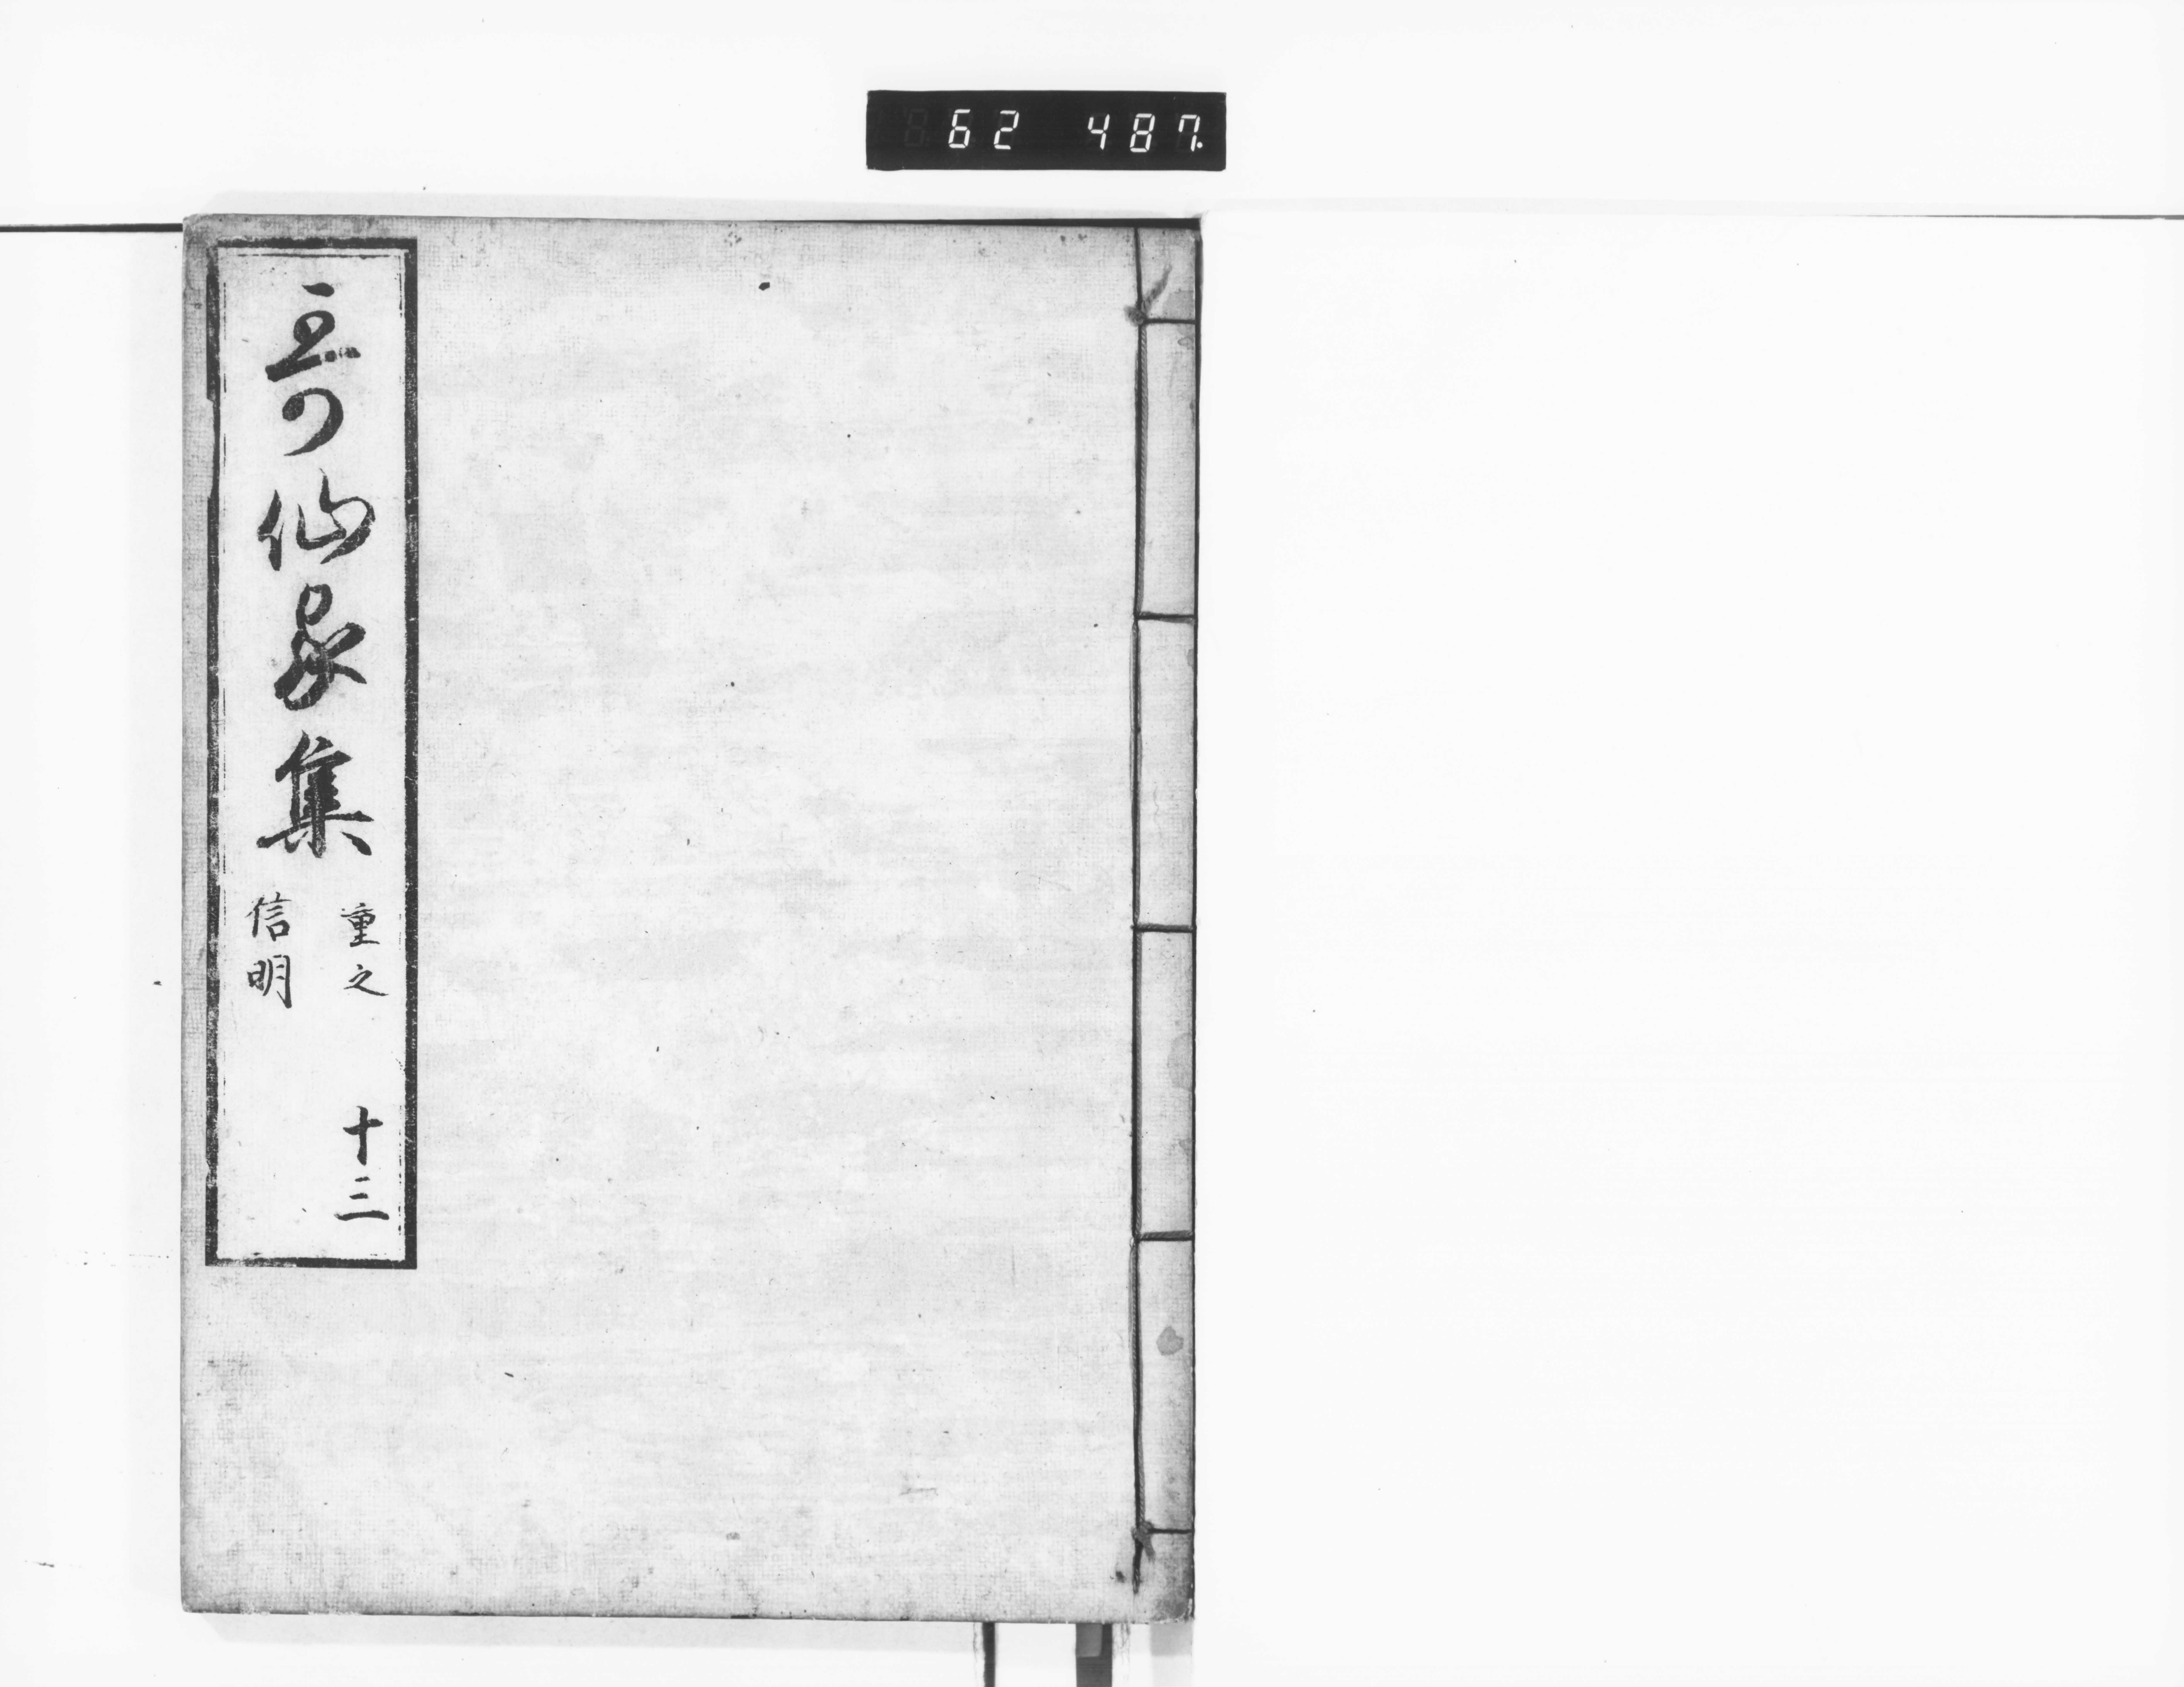 62 487.
哥仙家集
重之
信明
十三